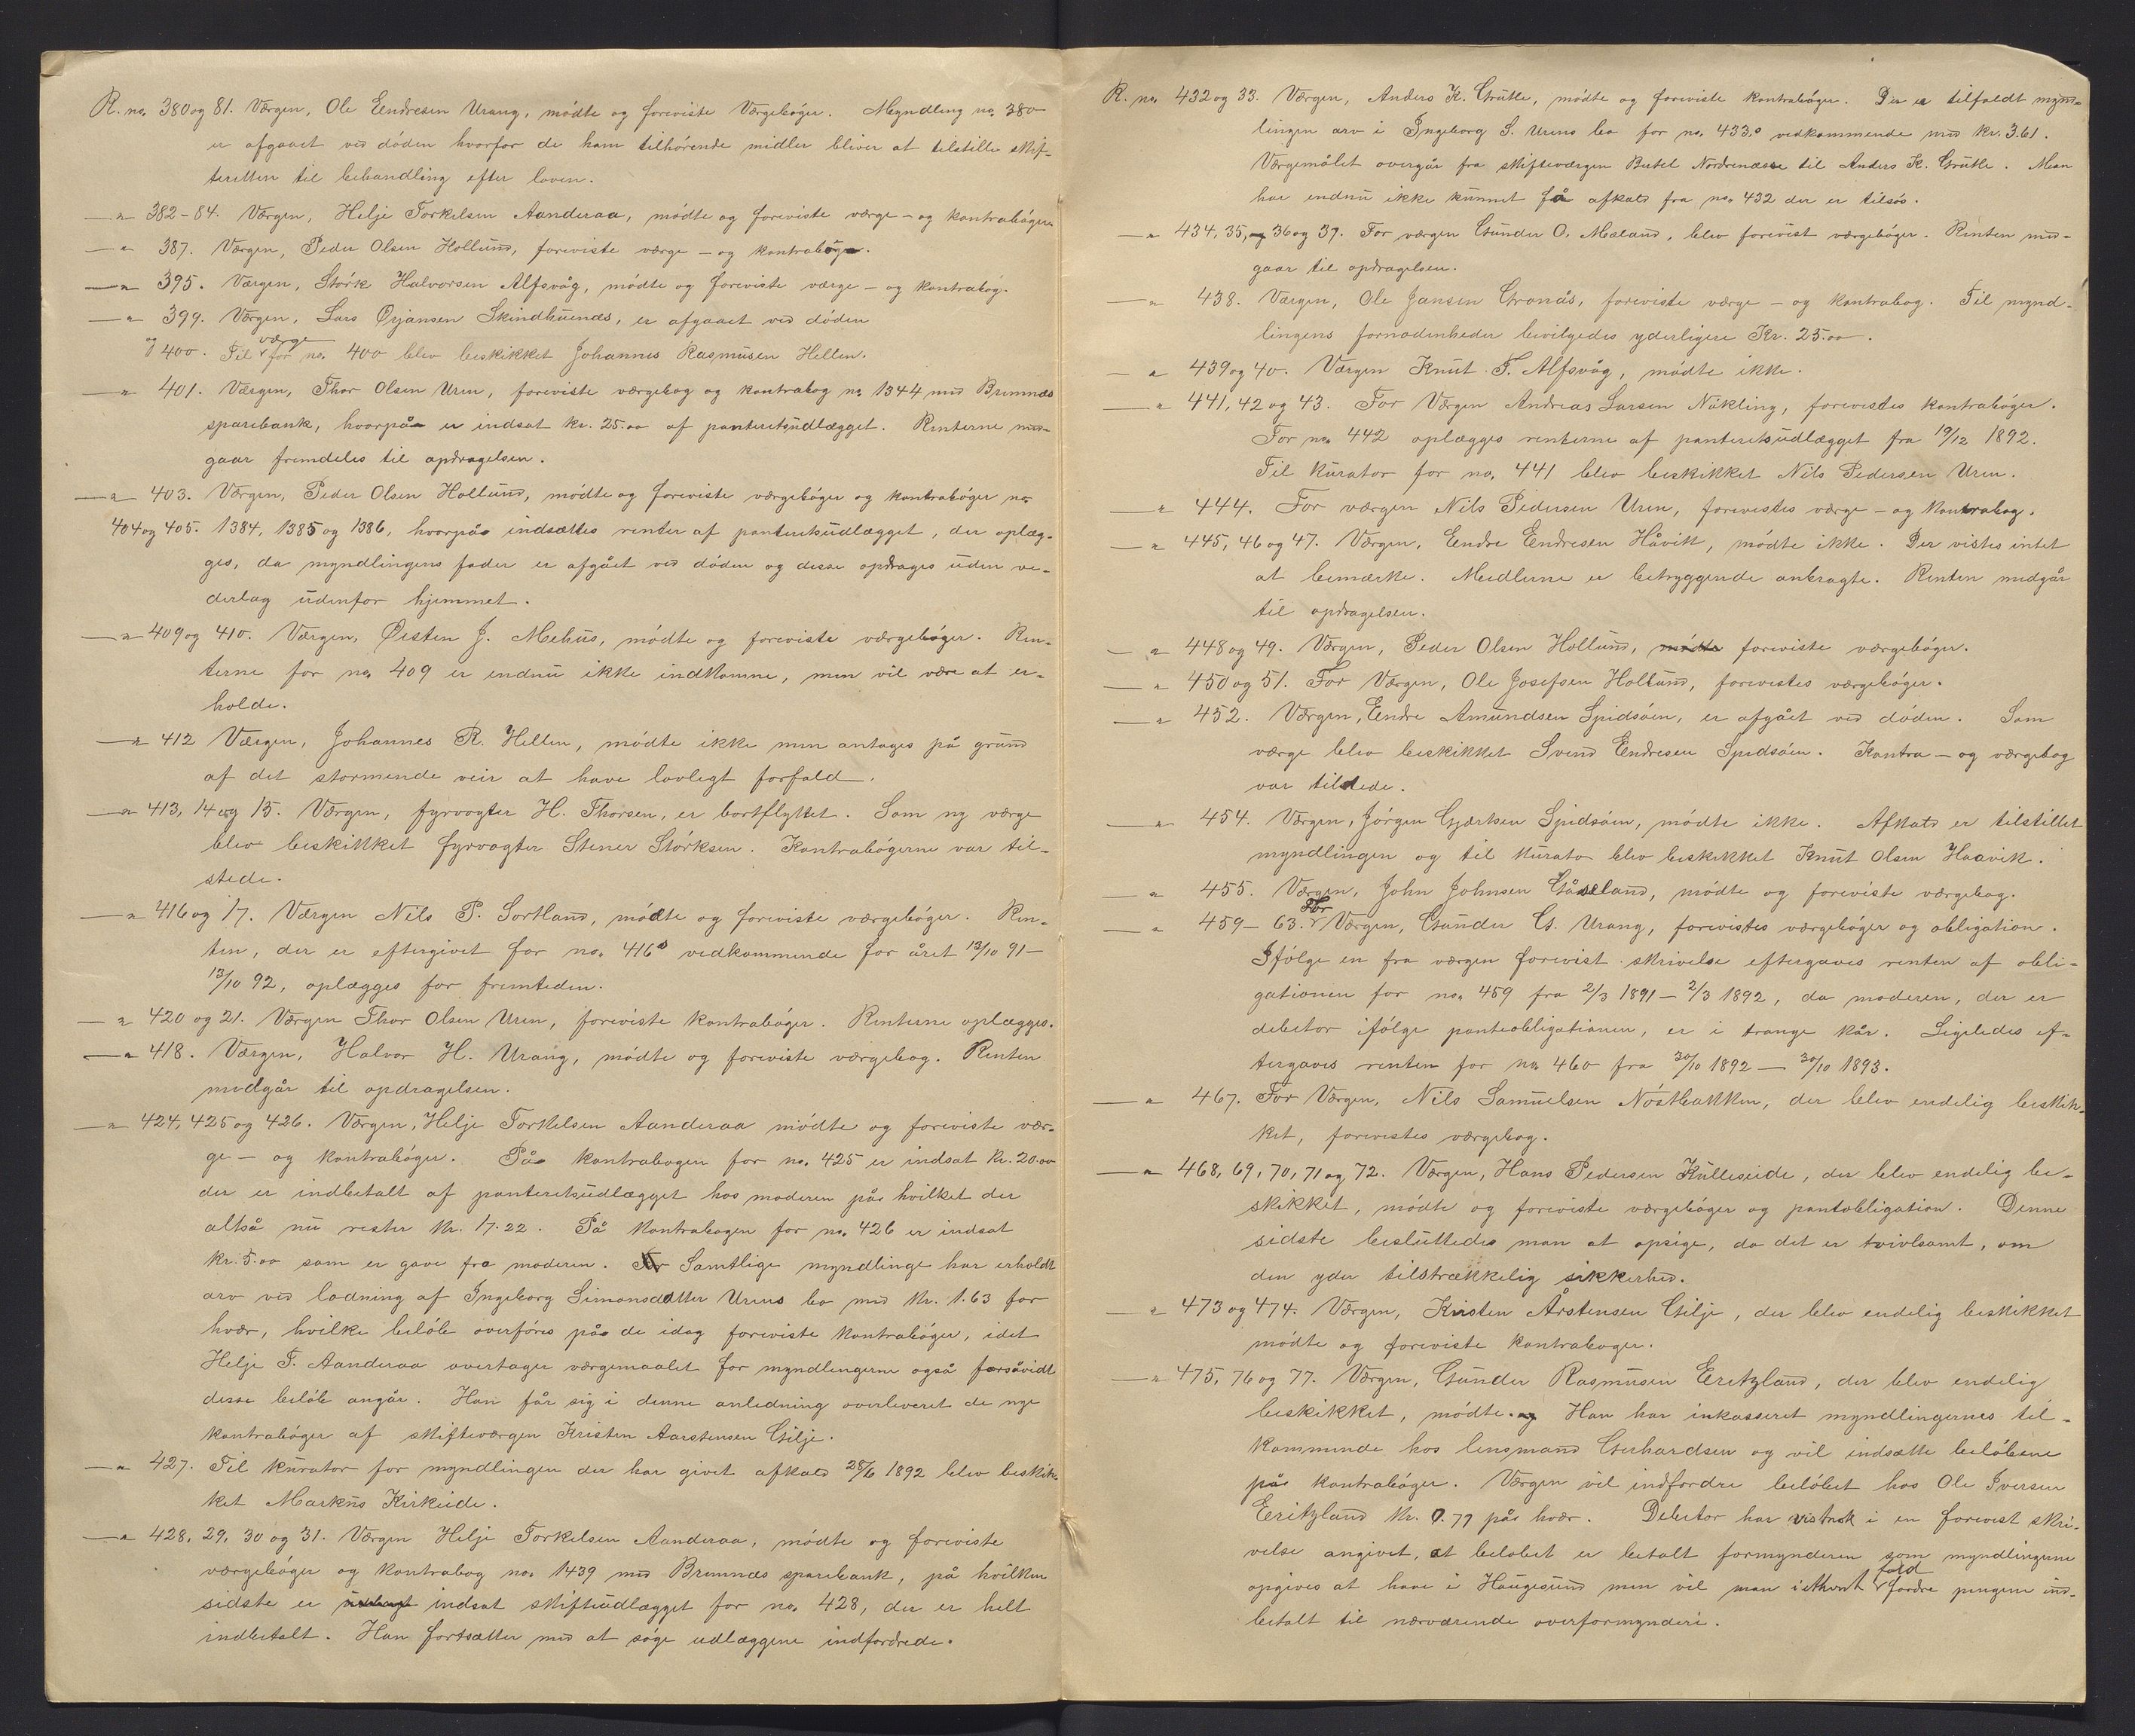 R. no. 380 og 81. Værgen, Ole Eendresen Urang, mødte og foreviste Værgebøger. Myndling no. 380
er afgaaet ved døden hvorfor de ham tilhørende midler bliver at tilstille skif-
teretten til behandling efter loven.
— „ — 382-84. Værgen, Helje Torkelsen Aanderaa, mødte og foreviste værge- og kontrabøger.
— „ 387. Værgen, Peder Olsen Hollund, foreviste værge- og kontrabøger.
— „ 395. Værgen, Størk Halvorsen Alfsvåg, mødte og foreviste værge- og kontrabog.
— „ 399. Værgen, Lars Ørjansen Skindhuenæs, er afgaaet ved døden
og 400. Til værge for no. 400 blev beskikket Johannes Rasmusen Hellen.
— „ 401. Værgen, Thor Olsen Uren, foreviste værgebog og kontrabog no. 1344 med Bremnæs
sparebank, hvorpå er indsat kr. 25.00 af panteretsudlægget. Renterne med-
gaar fremdeles til opdragelsen.
— „ 403. Værgen, Peder Olsen Hollund, mødte og foreviste værgebøger og kontrabøger no.
404 og 405. 1384, 1385 og 1386, hvorpå indsættes renter af panteretsudlægget, der oplæg-
ges, da myndlingens fader er afgået ved døden og disse opdrages uden ve-
derlag udenfor hjemmet.
— „ 409 og 410. Værgen, Østen J. Mehus, mødte og foreviste værgebøger. Ren-
terne for no. 409 er endnu ikke indkomne, men vil være at er-
holde.
— „ 412 Værgen, Johannes R. Hellen, mødte ikke men antages på grund
af det stormende veir at have lovlegt forfald.
— „ 413, 14 og 15. Værgen, fyrvogter H. Thorsen, er bortflyttet. Som ny værge
blev beskikket fyrvogter Stener Størksen. Kontrabøgerne var til-
stede.
— „ 416 og 17. Værgen Nils P. Sortland, mødte og foreviste værgebøger. Ren-
ten, der er eftergivet for no. 416s vedkommende for året 13/10 91 —
13/10 92, oplægges for fremtiden.
— „ 420 og 21. Værgen Thor Olsen Uren, foreviste kontrabøger. Renterne oplægges.
— „ 418. Værgen, Halvor H. Urang, mødte og foreviste værgebog. Renten
medgår til opdragelsen.
— „ 424, 425 og 426. Værgen, Helje Torkelsen Aanderaa mødte og foreviste vær-
ge- og kontrabøger. På kontrabogen for no. 425 er indsat kr. 20.00
der er indbetalt af panteretsudlægget hos moderen på hvilket der
altså nu rester kr. 17.22. På kontrabogen for no. 426 er indsat
kr. 5.00 som er gave fra moderen. Samtlige myndlinge har erholdt
arv ved lodning af Ingeborg Simonsdatter Urens bo med kr. 1.63 for
hvær, hvilke beløb overføres på de idag foreviste kontrabøger, idet
Helje T. Aanderaa overtager værgemaalet for myndlengerne også forsåvidt
desse beløb angår. Han får sig i denne anledning overleveret de nye
kontrabøger af skifteværgen Kristen Aarstensen Gilje.
— „ 427. Til kurator for myndlingen der har givet afkald 28/6 1892 blev beskik-
ket Markus Kirkeide.
— „ 428, 29, 30 og 31. Værgen Helje Torkelsen Aanderaa, mødte og foreviste
værgebøger og kontrabog no. 1439 med Bremnæs sparebank, på hvilken
sidste er indsat skifteudlægget for no. 428, der er helt
indbetalt. Han fortsætter med at søge udlæggene indfordrede.
R. no. 432 og 33. Værgen, Anders K. Grutle, mødte og foreviste kontrabøger. Der er tilfaldt mynd-
lingen arv i Ingeborg S. Urens bo for no. 433s vedkommende med kr. 3.61.
Værgemålet overgår fra skifteværgen Butel Nordrenæsse til Anders K. Grutle. Man
har endnu ikke kunnet få afkald fra no. 432 der er tilsøs.
— „ 434, 35, 36 og 37. For værgen Gunder O. Mæland, blev forevist værgebøger. Renten med-
gaar til opdragelsen.
— „ 438. Værgen, Ole Jansen Gronås, foreviste værge- og kontrabog. Til mynd-
lingens fornødenheder bevilgedes yderligere Kr. 25.00.
— „ 439 og 40. Værgen Knut T. Alfsvåg, mødte ikke.
— „ 441, 42 og 43. For Værgen Andreas Larsen Nökling, forevistes kontrabøger.
For no. 442 oplægges renterne af panteretsudlægget fra 19/12 1892.
Til kurator for no. 441 blev beskikket Nils Pedersen Uren.
— „ 444. For værgen Nils Pedersen Uren, forevistes værge- og kontrabog.
— „ 445, 46 og 47. Værgen, Eendre Eendresen Håvik, mødte ikke. Der vistes intet
at bemærke. Medlerne er betryggende anbragte. Renten medgår
til opdragelsen.
— „ 448 og 49. Værgen, Peder Olsen Hollund, mødte foreviste værgebøger.
— „ 450 og 51. For Værgen, Ole Josefsen Hollund, forevistes værgebøger.
— „ 452. Værgen, Eendre Amundsen Spidsøen, er afgået ved døden. Som
værge blev beskikket Svend Eendresen Spidsøen. Kontra- og værgebog
var tilstede.
— „ 454. Værgen, Jørgen Gjærtsen Spidsøen, mødte ikke. Afkald er tilstillet
myndlingen og til kurator blev beskikket Knut Olsen Haavik.
— „ 455. Værgen, John Johnsen Gåseland, mødte og foreviste værgebog.
— „ 459-63. For Værgen, Gunder G. Urang, forevistes værgebøger og obligation.
Ifølge en fra værgen forevist skrivelse eftergaves renten af obli-
gationen for no. 459 fra 2/3 1891 — 2/3 1892, da moderen, der er
debetor ifølge panteobligationen, er i trange kår. Ligeledes ef-
tergaves renten for no. 460 fra 30/10 1892 — 30/10 1893.
— „ 467. For Værgen, Nils Samuelsen Nøstbakken, der blev endelig beskik-
ket, forevistes værgebog.
— „ 468, 69, 70, 71 og 72. Værgen, Hans Pedersen Kulleseide, der blev endelig be-
skikket, mødte og foreviste værgebøger og pantobligation. Denne
sidste besluttedes man at opsige, da det er tvivlsomt, om
den yder tilstrækkelig sikkerhed.
— „ 473 og 474. Værgen, Kristen Årstensen Gilje, der blev endelig beskikket
mødte og foreviste kontrabøger.
— „ 475, 76 og 77. Værgen, Gunder Rasmusen Eeritzland, der blev endelig
beskikket, mødte. Han har inkasseret myndlingernes til-
kommende hos lensmand Gerhardsen og vil indsætte beløbene
på kontrabøger. Værgen vil indfordre beløbet hos Ole Iversen
Eeritzland Kr. 0.77 på hvær. Debetor har vistnok i en forevist skri-
velse angivet, at beløbet er betalt formynderen som myndlingerne
opgives at have i Haugesund men vil man iethvert fald fordre pengene ind-
betalt til nærværende overformynderi.